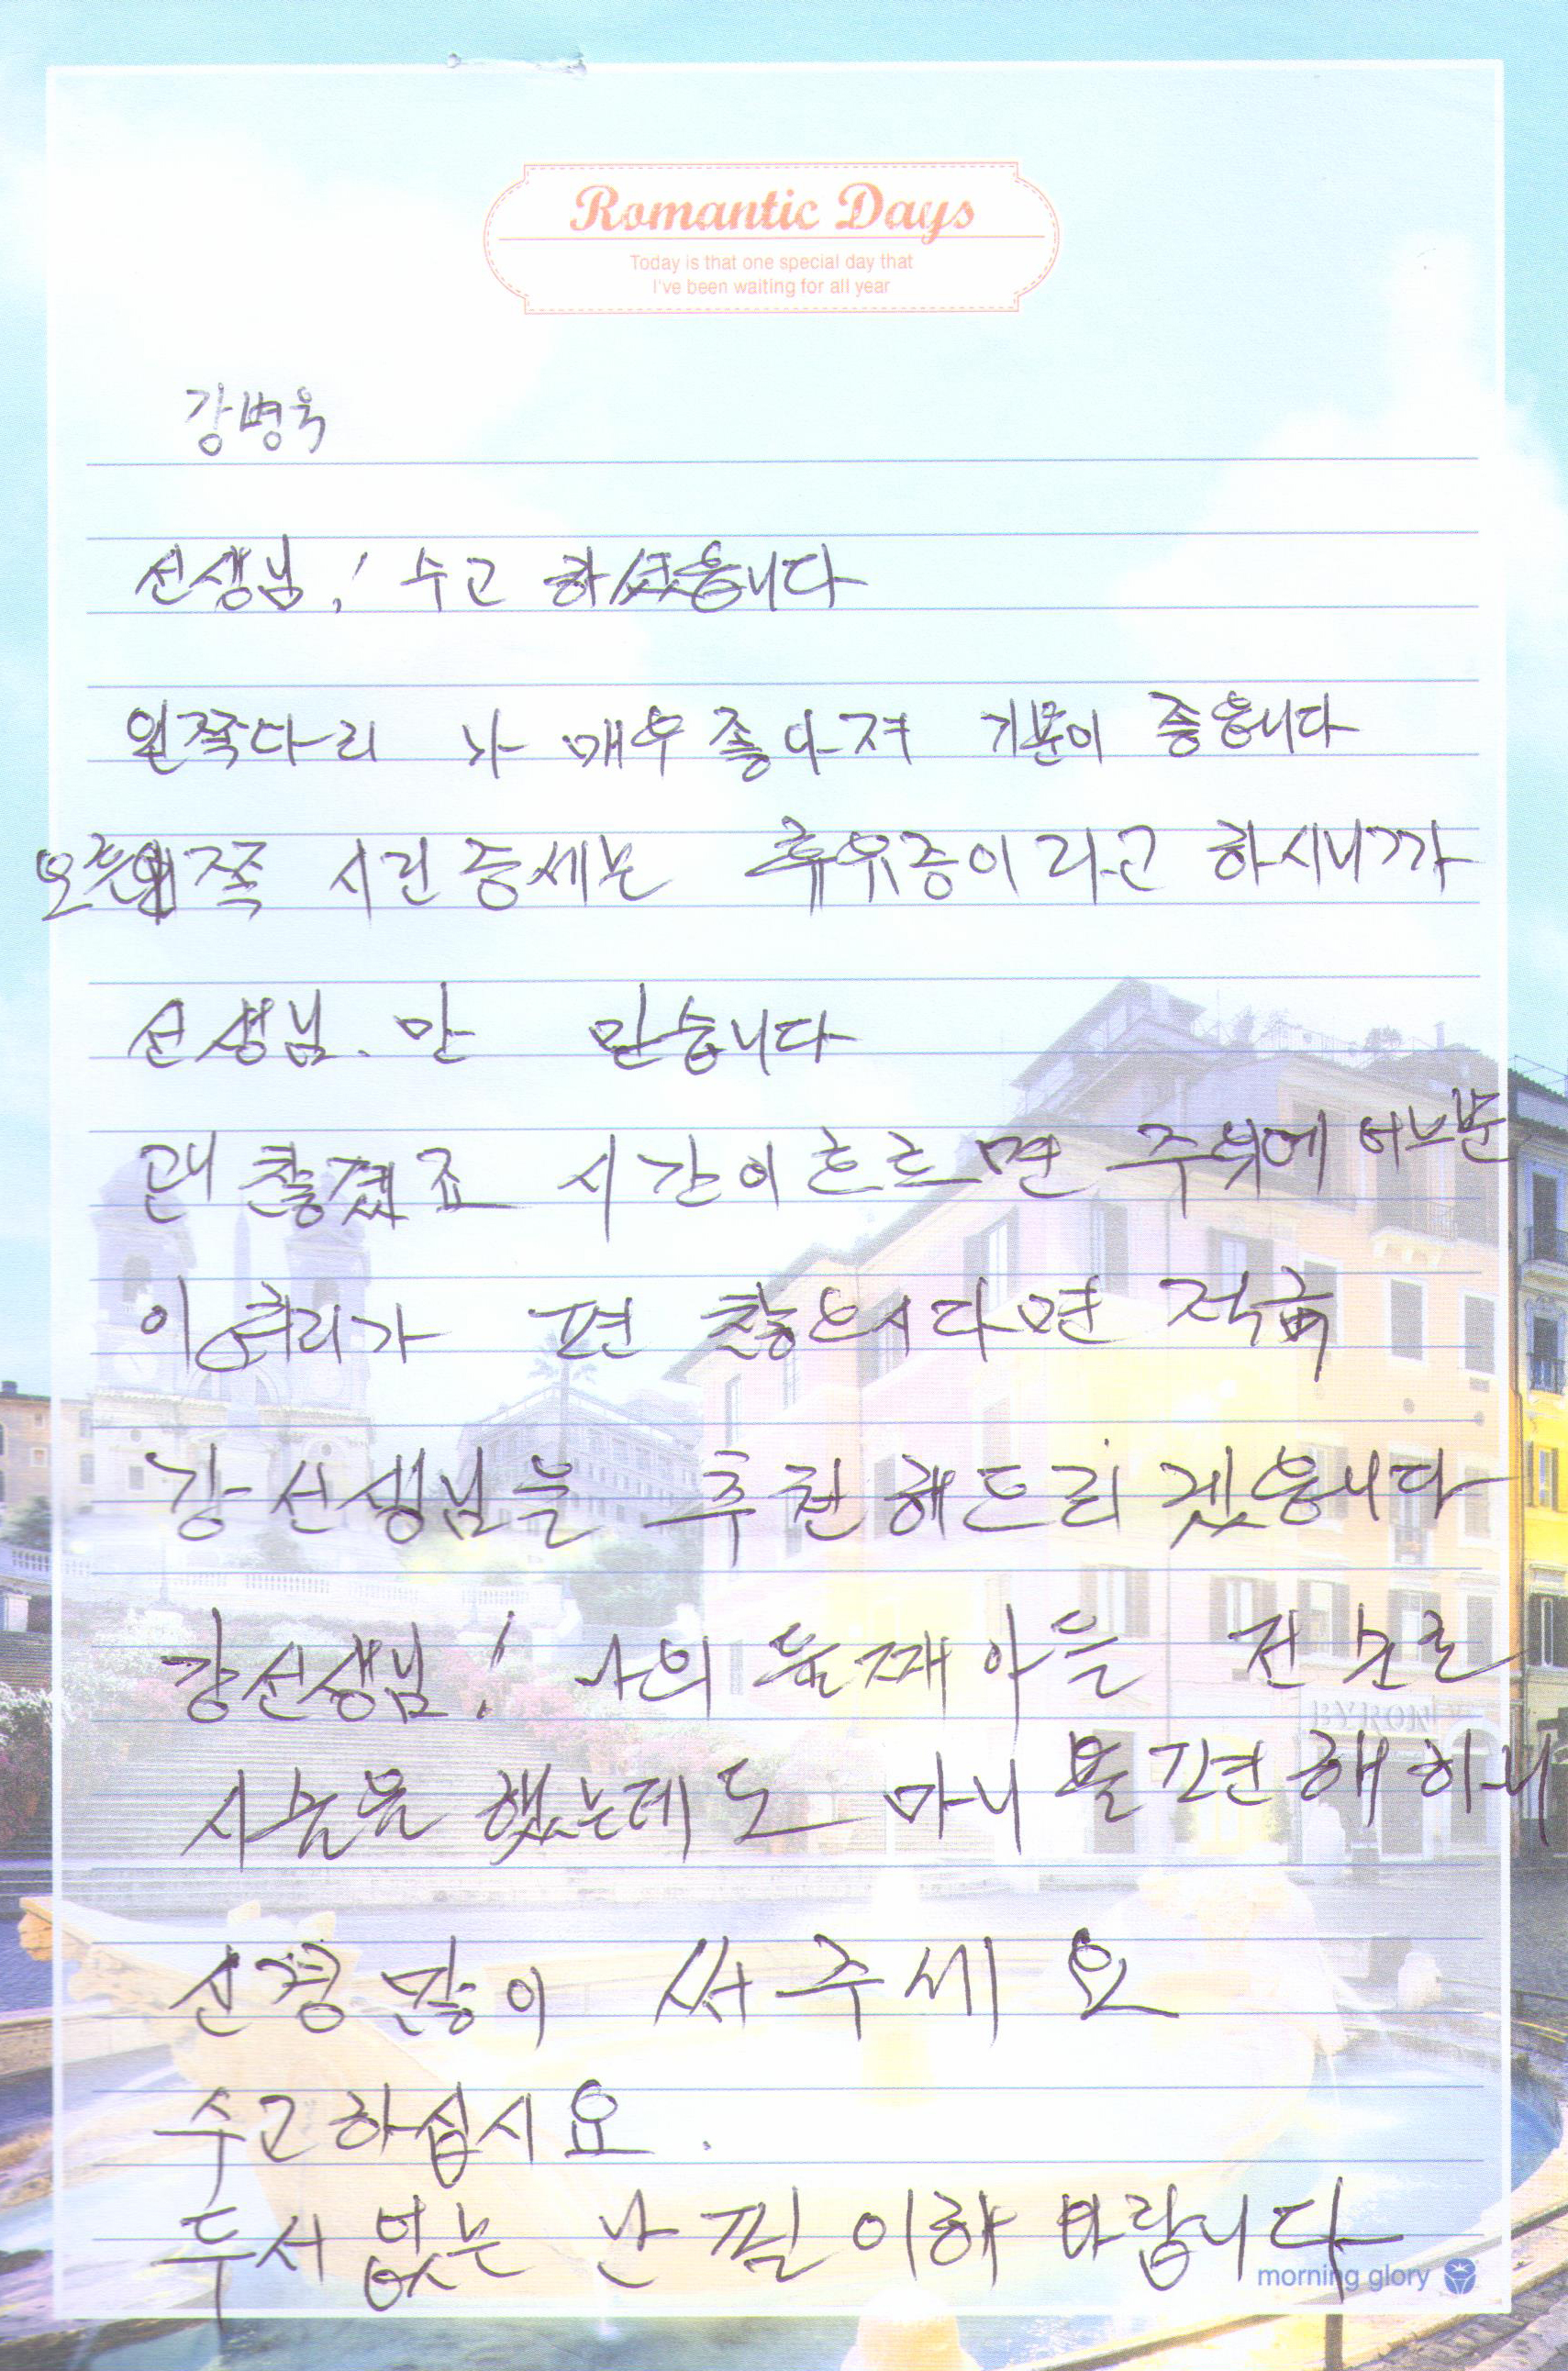 Romantic Days
Today is that one special day that
I've been waiting for all year
강병욱
선생님! 수고 하셨읍니다
왼쪽다리 가 매우 좋아져 기분이 좋읍니다
오른쪽 시린 증세는 휴유증이라고 하시니까
선생님. 만 믿습니다
괜찮겠죠 시간이 흐르면 주위에 어느분
이 허리가 편찮으시다면 적극
강선생님을 추천해드리겠읍니다
강선생님! 나의 둘째아들
시술을 했는데도 마니 불편해 하니
신경많이 써주세요
수고하십시요.
두서없는 난필 이해 바랍니다
morning glory